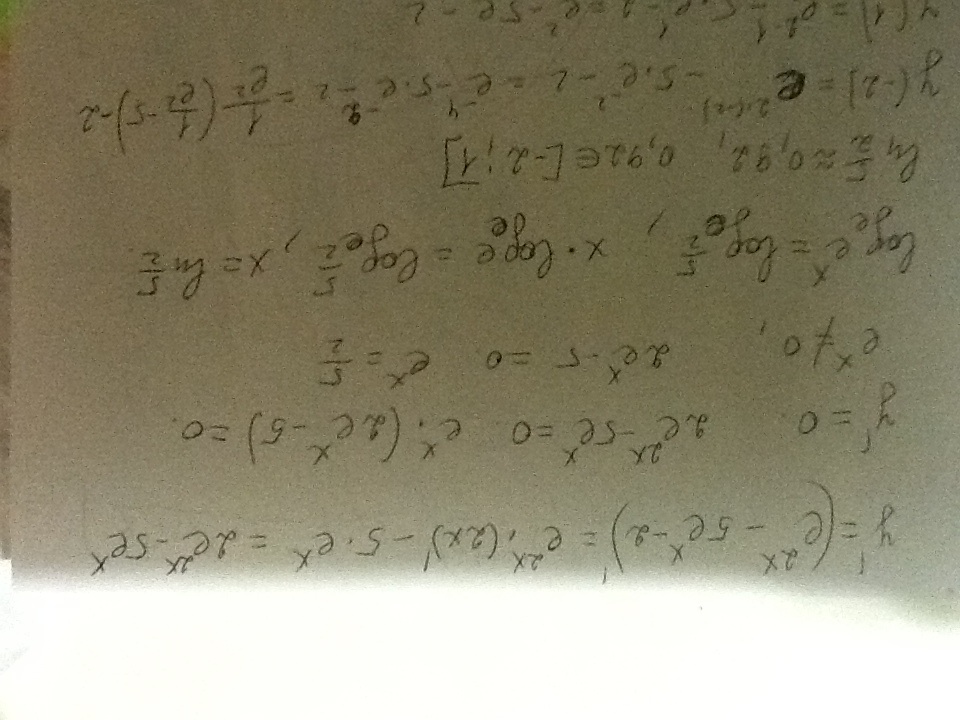 y' = (e^{2x} - 5e^x - 2)' = e^{2x} · (2x)' - 5 · e^x = 2e^{2x} - 5e^x
y' = 0. 2e^{2x} - 5e^x = 0 e^x · (2e^x - 5) = 0.
e^x ≠ 0, 2e^x - 5 = 0 e^x = 5/2
log_e e^x = log_e 5/2, x · log_e e = log_e 5/2, x = ln 5/2.
ln 5/2 ≈ 0,92, 0,92 ∈ [-2; 1]
y(-2) = e^{2·(-2)} - 5 · e^{-2} - 2 = e^{-4} - 5 · e^{-2} - 2 = 1/e^2 (1/e^2 - 5) - 2
y(1) = e^{2·1} - 5 · e^1 - 2 = e^2 - 5e - 2